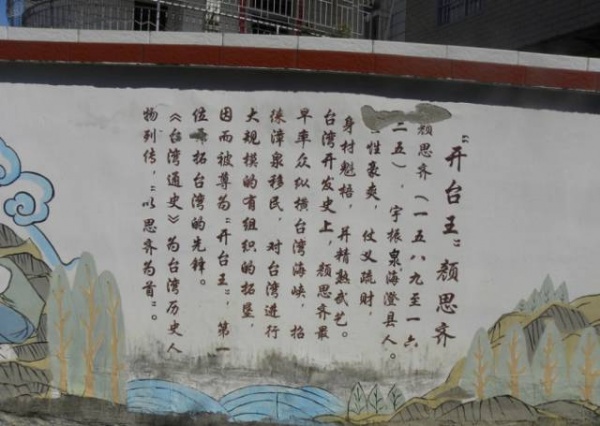 “开台王”颜思齐
颜思齐（一五八九至一六
二五），字振泉，海澄县人。
性豪爽，仗义疏财，
身材魁梧，并精熟武艺。
台湾开发史上，颜思齐最
早率众纵横台湾海峡，招
徕漳泉移民，对台湾进行
大规模的有组织的拓垦，
因而被尊为“开台王”，第一
位开拓台湾的先锋。
《台湾通史》为台湾历史人
物列传，“以思齐为首”。